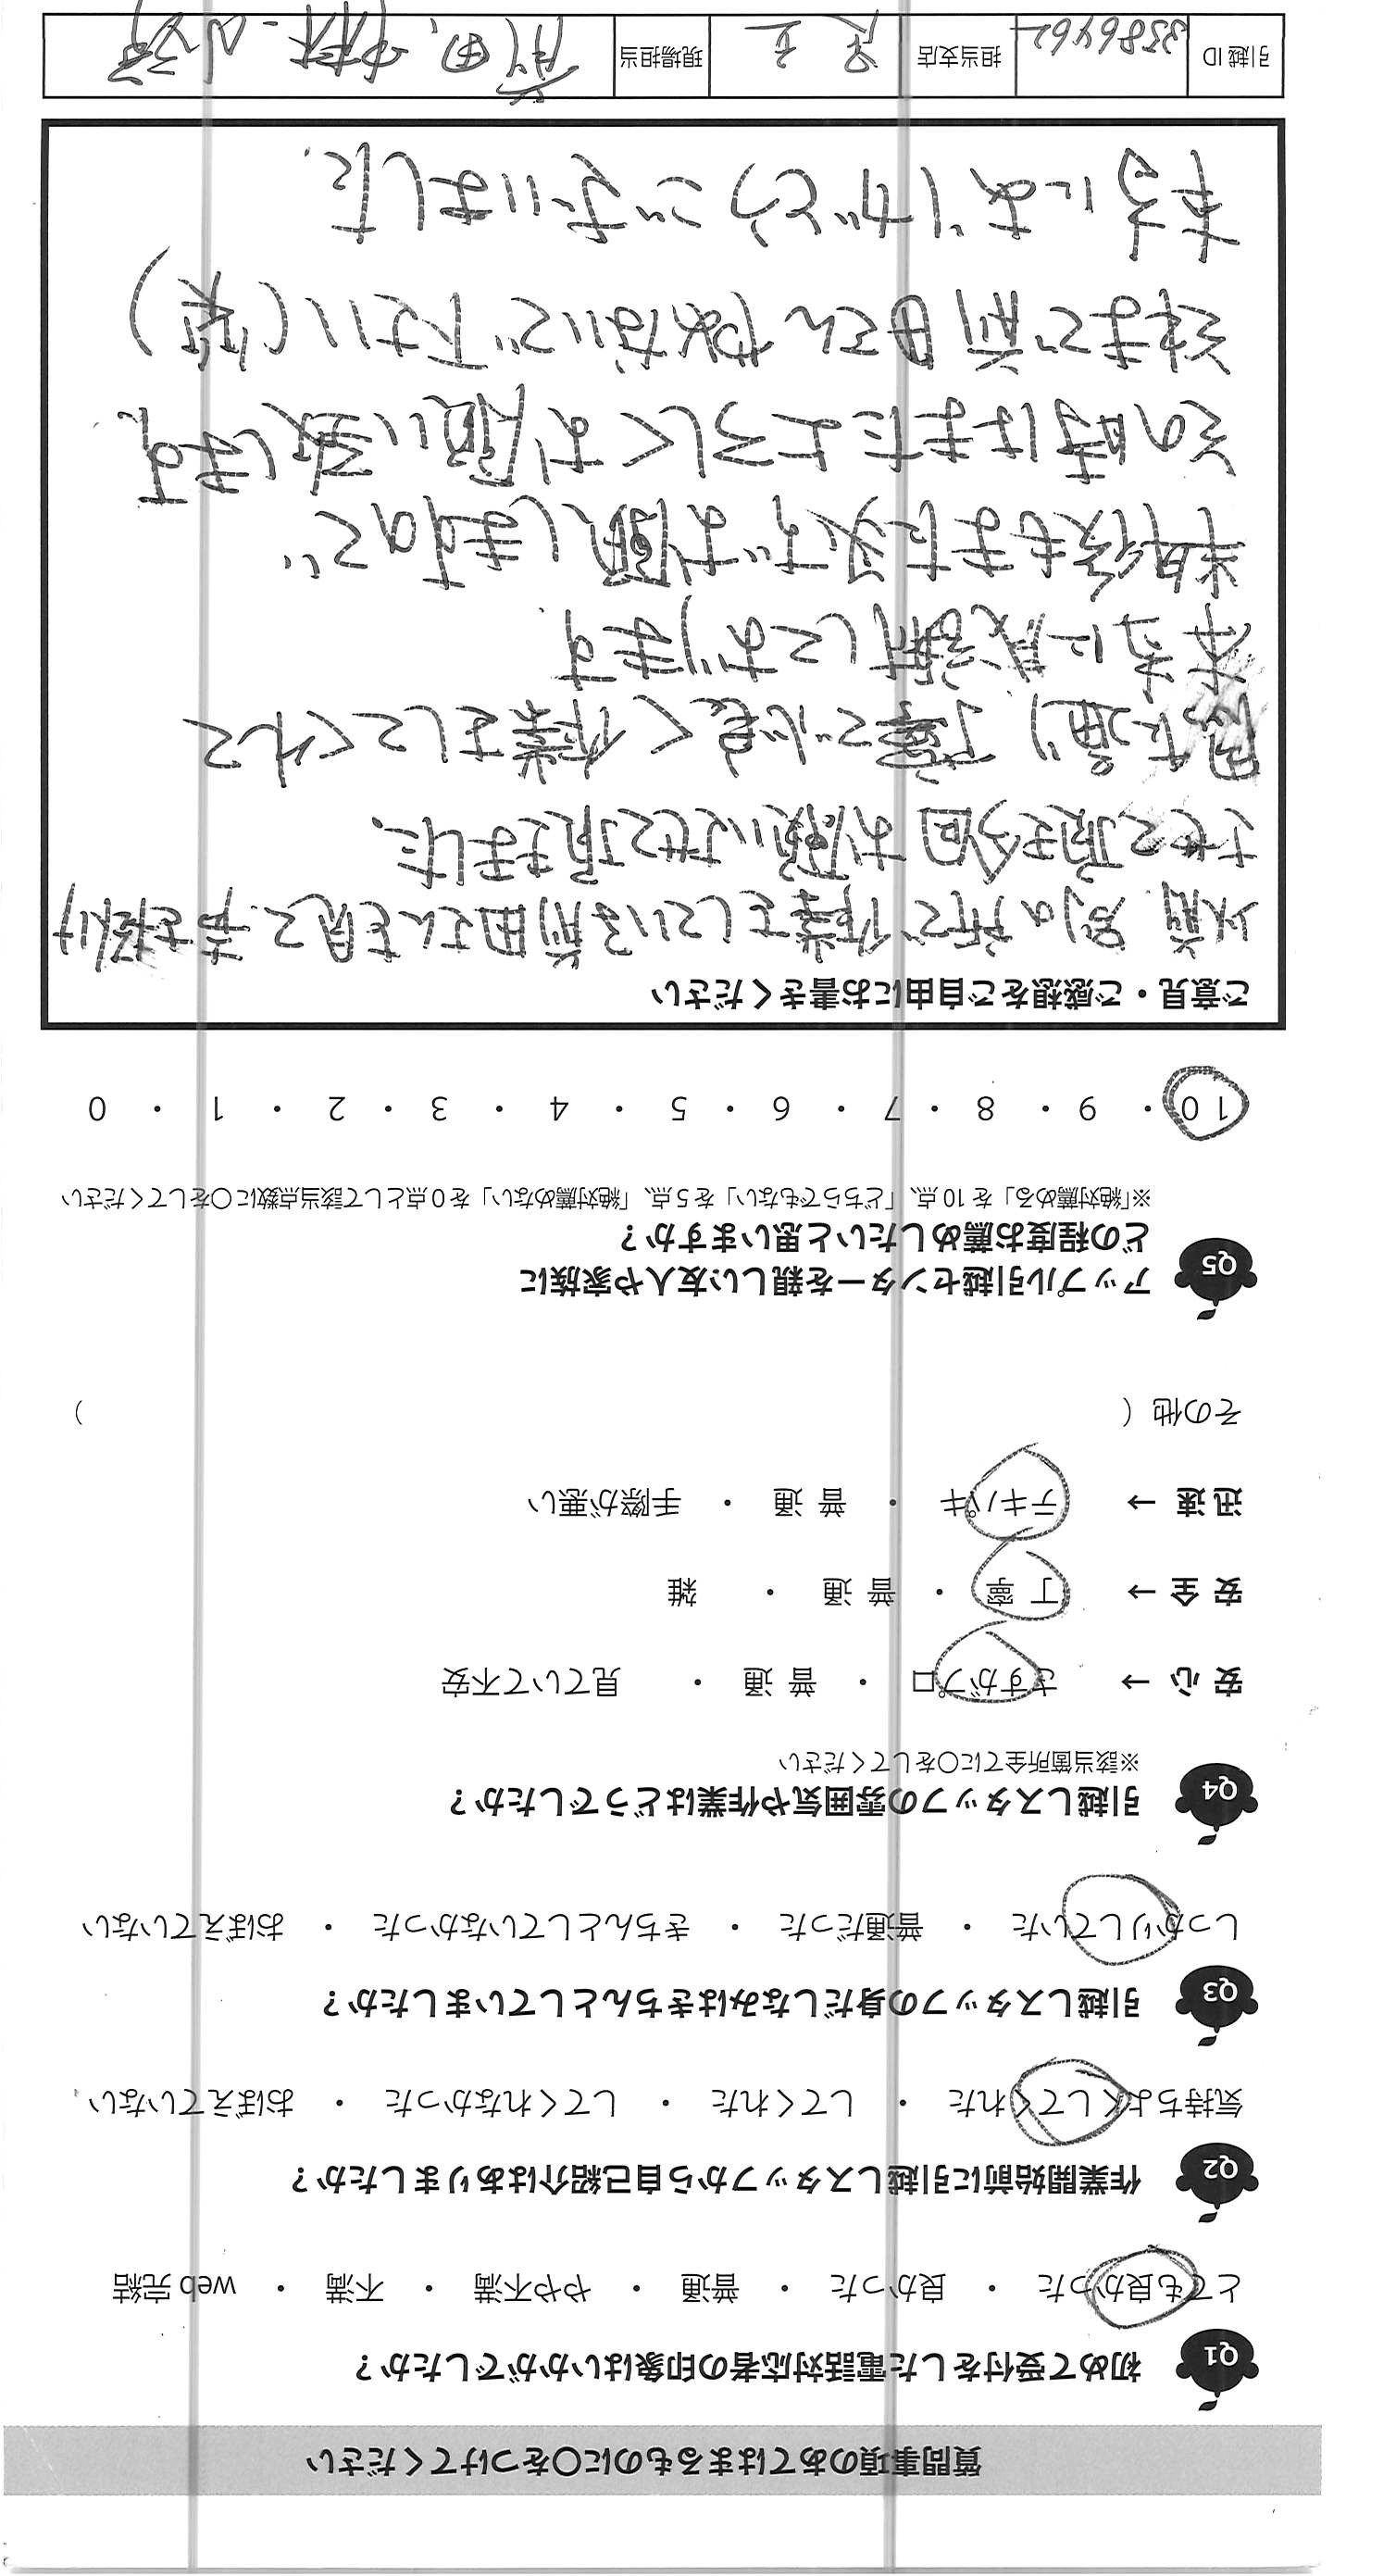 質問事項のあてはまるものに〇をつけてください
Q1 初めて受付をした電話対応者の印象はいかがでしたか？
とても良かった ・ 良かった ・ 普通 ・ やや不満 ・ 不満 ・ web 完結
Q2 作業開始前に引越しスタッフから自己紹介はありましたか？
気持ちよくしてくれた ・ してくれた ・ してくれなかった ・ おぼえていない
Q3 引越しスタッフの身だしなみはきちんとしていましたか？
しっかりしていた ・ 普通だった ・ きちんとしていなかった ・ おぼえていない
Q4 引越しスタッフの雰囲気や作業はどうでしたか？
※該当箇所全てに〇をしてください
安心 → さすがプロ ・ 普通 ・ 見ていて不安
安全 → 丁寧 ・ 普通 ・ 雑
迅速 → テキパキ ・ 普通 ・ 手際が悪い
その他（ ）
Q5 アップル引越センターを親しい友人や家族に
どの程度お薦めしたいと思いますか？
※「絶対薦める」を 10 点、「どちらでもない」を 5 点、「絶対薦めない」を 0 点として該当点数に〇をしてください
10 ・ 9 ・ 8 ・ 7 ・ 6 ・ 5 ・ 4 ・ 3 ・ 2 ・ 1 ・ 0
ご意見・ご感想をご自由にお書きください
以前、別の所で作業をしている前田さんを見て、声を掛け
させて頂き今回お願いさせて頂きました。
思た通り、丁寧で心良く作業をしてくれて
本当に感謝しております.
今後もまた必ずお願しますので
その時はまたよろしくお願い致します.
それまで前田さんやめないで下さい(笑)
本当にありがとうございました.
引越 ID 3586462 担当支店 足立 現場担当 前田、中林、山